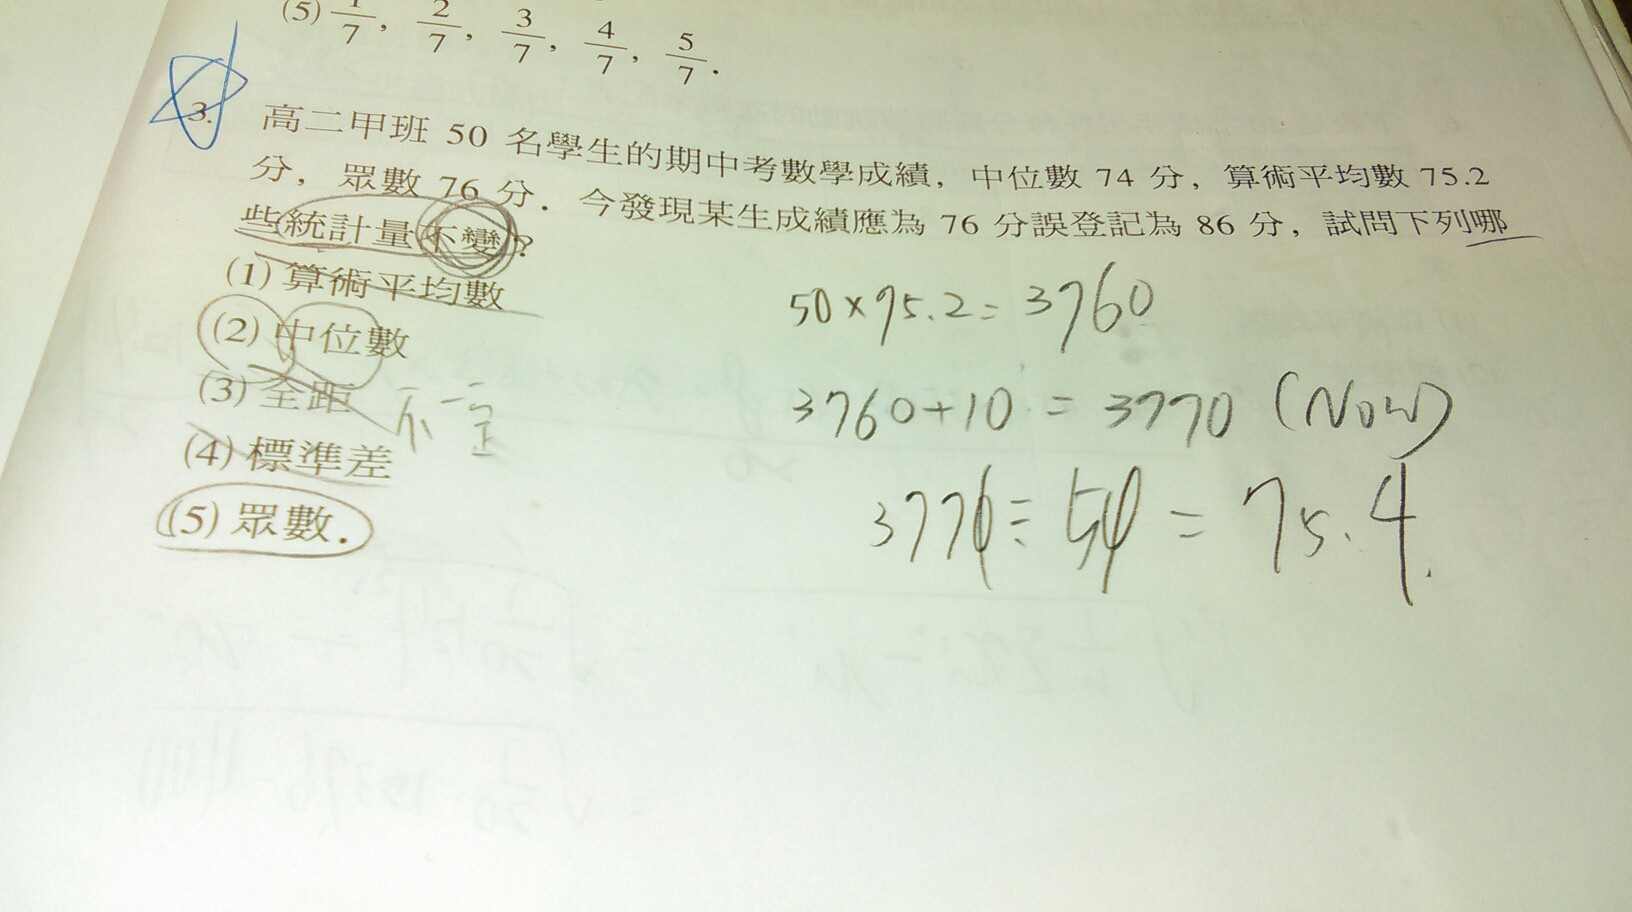 (5) 1/7, 2/7, 3/7, 4/7, 5/7.
3. 高二甲班 50 名學生的期中考數學成績，中位數 74 分，算術平均數 75.2
分，眾數 76 分．今發現某生成績應為 76 分誤登記為 86 分，試問下列哪
些統計量不變？
(1) 算術平均數
(2) 中位數
(3) 全距 不一定
(4) 標準差
(5) 眾數．
50×75.2=3760
3760+10=3770 (Now)
3770÷50=75.4.